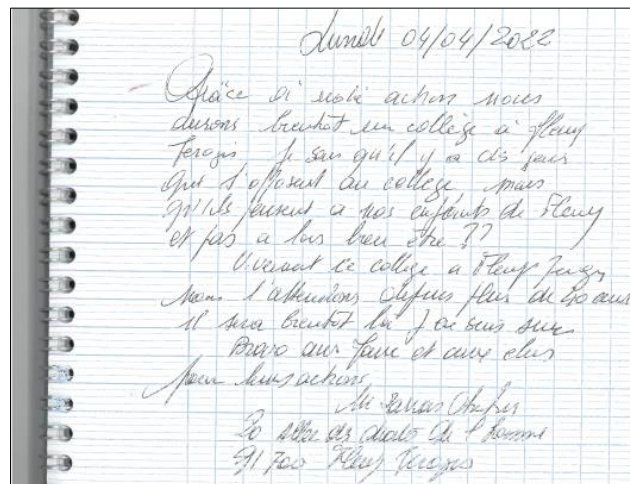 Lundi 04/04/2022
Grâce à notre action nous
aurons bientôt un collège à Fleury
Merogis Je sais qu'il y a des gens
qui s'opposent au collège mais
qu'ils pensent a nos enfants de Fleury
et pas a leur bien être ??
Vivement ce collège a Fleury
nous l'attendons depuis plus de ans
il sera bientôt là j'en suis sur
Bravo aux et aux elus
pour leurs actions
M.
20 allée des droits de l'homme
91700 Fleury Merogis